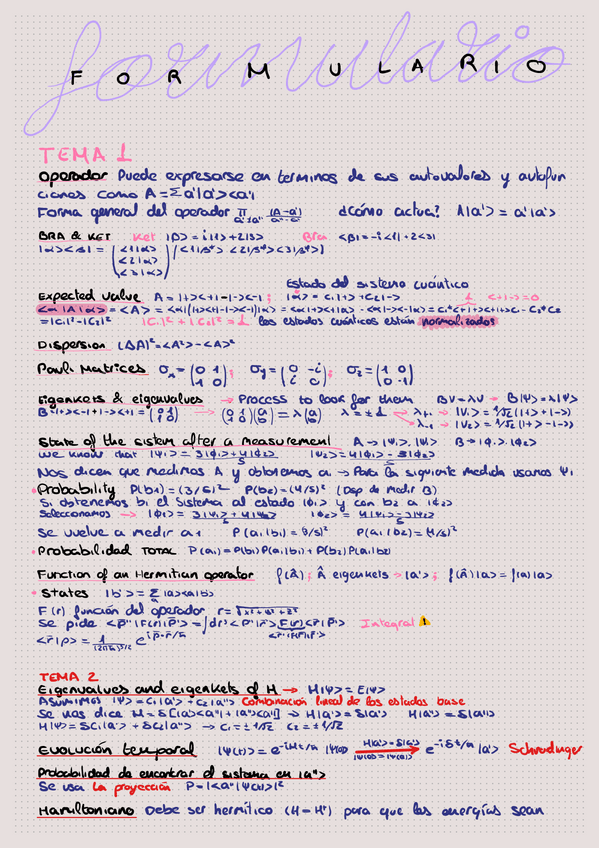 formulario
FORMULARIO
TEMA 1
Operador Puede expresarse en terminos de sus autovalores y autofun
ciones como A = Σ a'|a'><a'|
Forma general del operador π a'≠a'' (A-a')/(a''-a') ¿Cómo actua? A|a'> = a'|a'>
BRA & KET Ket |β> = i|1> + 2|3> Bra <β| = -i<1| + 2<3|
|α><β| = (<1|α> <2|α> <3|α>) (<1|β>* <2|β>* <3|β>*)
Estado del sistema cuántico
Expected value A = |+><+|-|-><-| ; |α> = C₁|+> + C₂|-> 1 <+|-> = 0
<α|A|α> = <A> = <α|(|+><+|-|-><-|)|α> = <α|+><+|α> - <α|-><-|α> = C₁*<+|+><+|+>C₁ - C₂*C₂
= |C₁|²-|C₂|² |C₁|² + |C₂|² = 1 los estados cuánticos están normalizados
Dispersion (ΔA)² = <A²> - <A>²
Pauli Matrices σx = (0 1 1 0) ; σy = (0 -i i 0) ; σz = (1 0 0 -1)
Eigenkets & eigenvalues → Process to look for them BV = λV → B|Ψ> = λ|Ψ>
B = |+><-|+|-><+| = (0 1 1 0) → (0 1 1 0)(a b) = λ(a b) λ = ±1 λ+1 → |V₁> = 1/√2 (|+> + |->)
λ-1 → |V₂> = 1/√2 (|+> - |->)
State of the sistem after a measurement A → |Ψ₁>, |Ψ₂> B → |Φ₁>, |Φ₂>
We know that |Ψ₁> = 3|Φ₁> + 4|Φ₂>/5 |Ψ₂> = 4|Φ₁> - 3|Φ₂>/5
Nos dicen que medimos A y obtenemos a₁ → Para la siguiente medida usamos Ψ₁
• Probability P(b₁) = (3/5)² P(b₂) = (4/5)² (Dsp de medir B)
Si obtenemos b₁ el sistema al estado |Φ₁> y con b₂ a |Φ₂>
Seleccionamos → |Φ₁> = 3|Ψ₁> + 4|Ψ₂>/5 |Φ₂> = 4|Ψ₁> - 3|Ψ₂>/5
Se vuelve a medir a₁ P(a₁|b₁) = (3/5)² P(a₁|b₂) = (4/5)²
• Probabilidad TOTAL P(a₁) = P(b₁)P(a₁|b₁) + P(b₂)P(a₁|b₂)
Function of an Hermitian operator f(Â) ; Â eigenkets → |a'> ; f(Â)|a> = f(a)|a>
• States |b'> = Σ |a><a|b>
F(r) función del operador r = √x²+y²+z²
Se pide <p̄''|F(r)|p̄'> = ∫dr³ <p̄''|r̄> F(r) <r̄|p̄'> Integral
<r̄|p> = 1/(2πħ)^3/2 e^ip̄·r̄/ħ
TEMA 2
Eigenvalues and eigenkets of H → H|Ψ> = E|Ψ>
Asumimos |Ψ> = C₁|a'> + C₂|a''> Combinación lineal de los estados base
Se nos dice H = δ[|a'><a''| + |a''><a'|] → H|a''> = δ|a'> H|a'> = δ|a''>
H|Ψ> = δC₁|a''> + δC₂|a'> → C₁ = ±1/√2 C₂ = ±1/√2
Evolución temporal |Ψ(t)> = e^-iHt/ħ |Ψ(0)> H|a'> = δ|a'> |Ψ(0)> = |Ψ(a')> e^-iδt/ħ |a'> Schrodinger
Probabilidad de encontrar el sistema en |a''>
Se usa la proyección P = |<a''|Ψ(t)>|²
Hamiltoniano Debe ser hermítico (H = H⁺) para que las energías sean